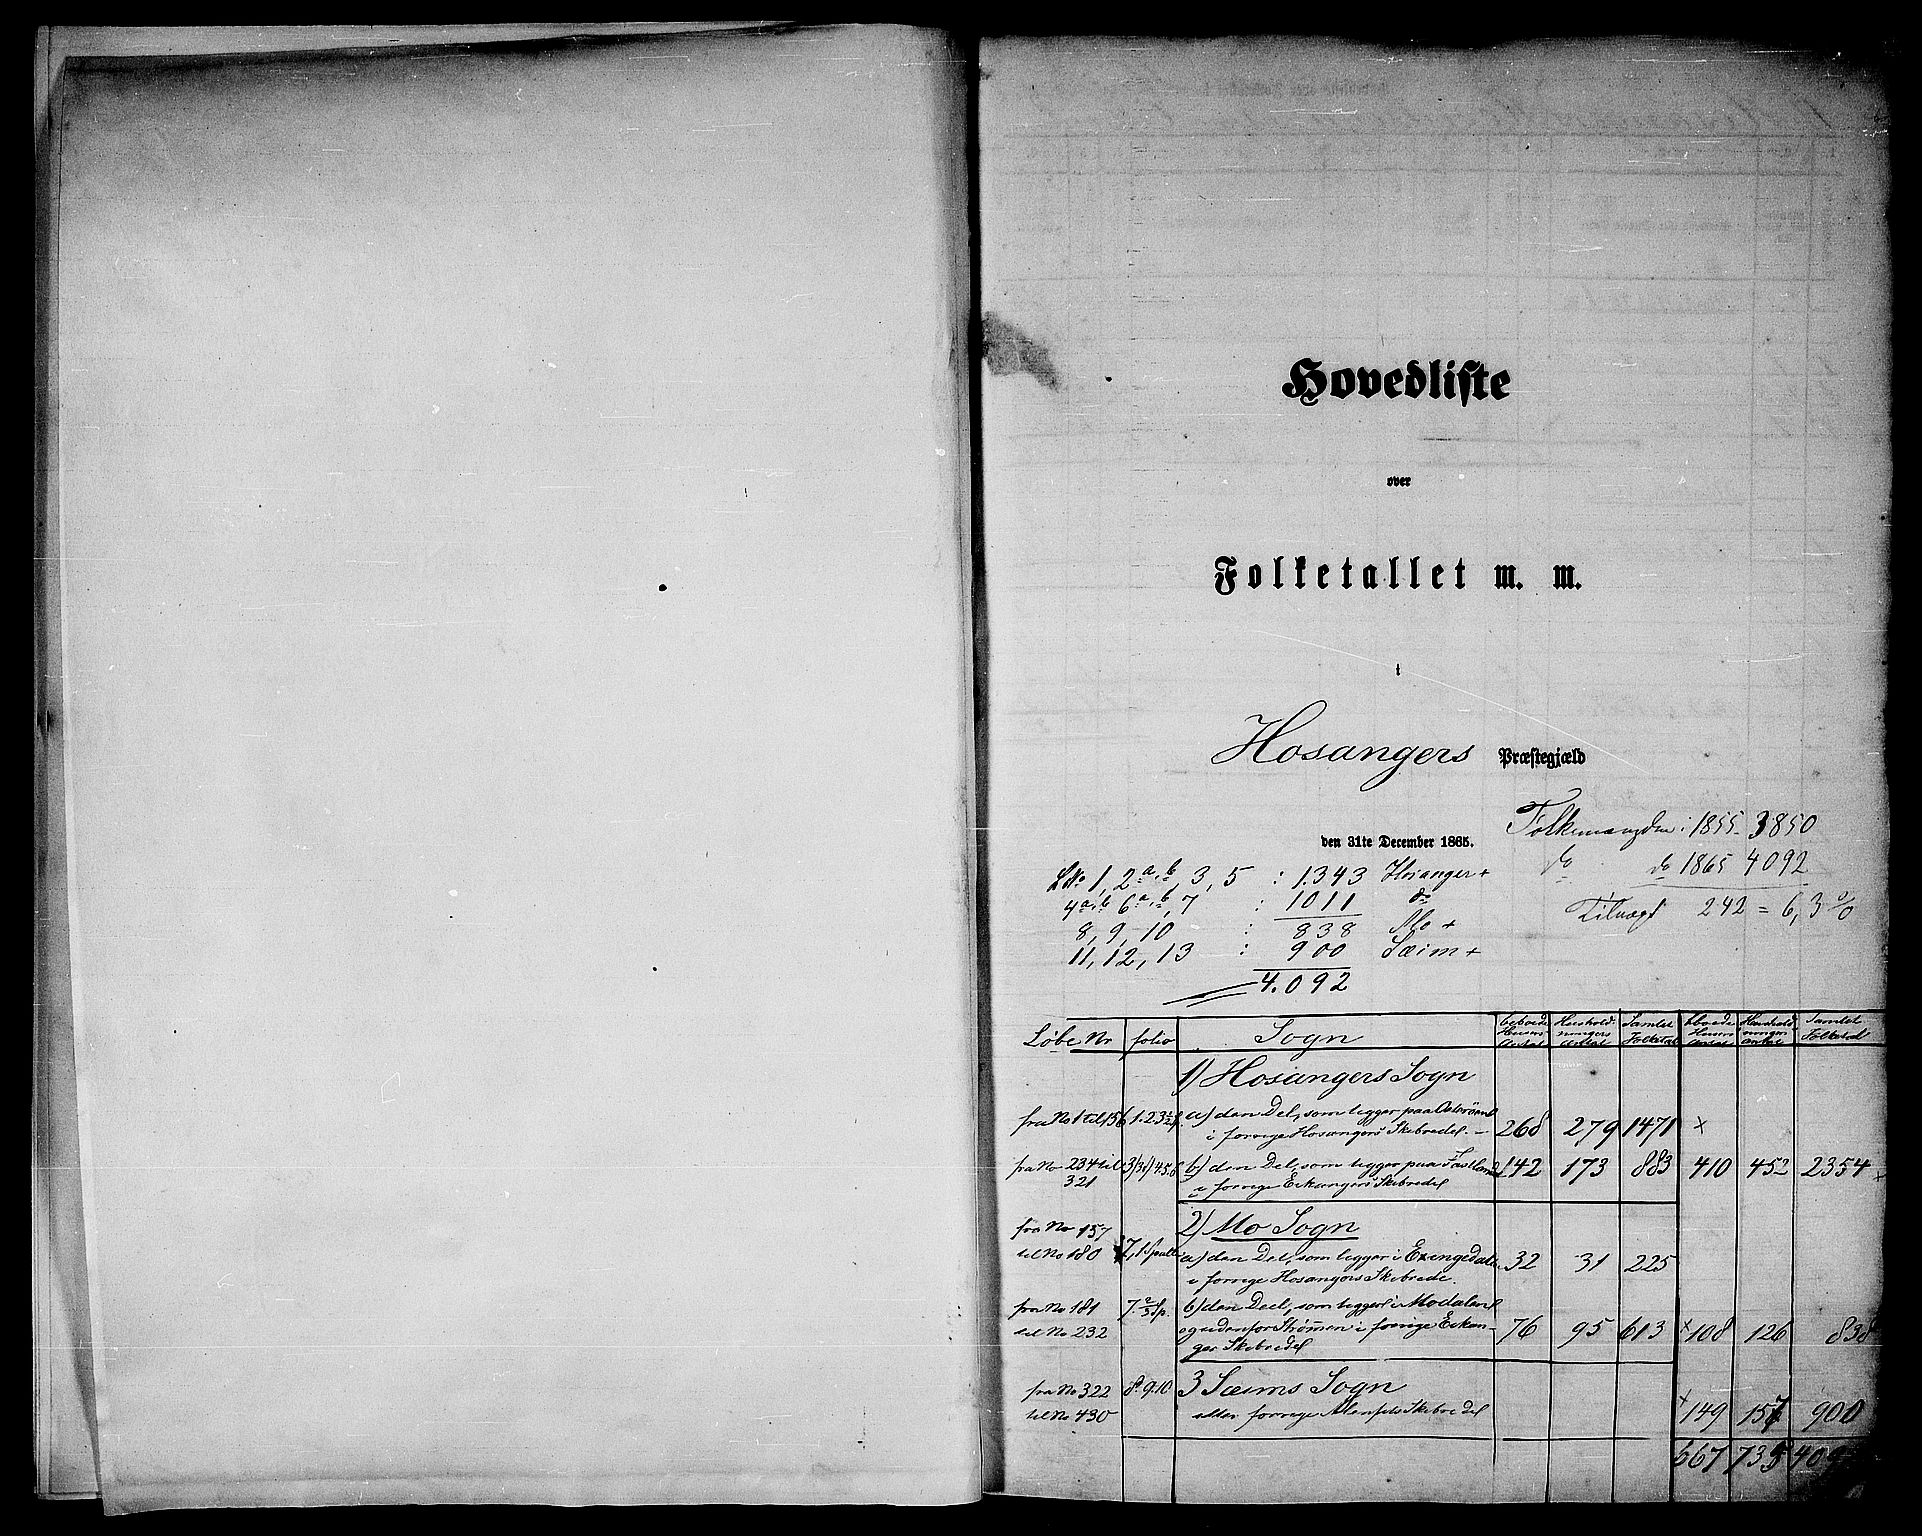 Hovedliste
over
Folketallet m. m.
i
Hosangers Præstegjæld
den 31te December 1865.
Folkemængden i 1855 - 3850
do do 1865 4092
Tilvæxt 242 = 6,3 %
LNo 1, 2a,b, 3, 5 : 1.343 Hosanger +
4a,b 6a,b, 7 : 1011 do
8, 9, 10 : 838 Mo +
11, 12, 13 : 900 Sæim +
4.092
Løbe Nr folio Sogn beboede Huses Antal Husholdningers Antal Samlet Folketal beboede Huses Antal Husholdningers Antal Samlet Folketal
1) Hosangers Sogn
fra No 1 til 156 a) den Del, som ligger paa Osterøen
i forrige Hosangers Skibredel. - 268 279 1471 x
fra No 234 til b) den Del, som ligger paa Fastlandet 142 173 883 410 452 2354 x
321 i forrige Eikangers Skibredel
2) Mo Sogn
fra No 157
til No 180 a) den Del, som ligger i Exingedalen 32 31 225
i forrige Hosangers Skibrede.
fra No 181 b) den Deel, som ligger i Modalen
til No 232 og udenfor Strømmen i forrige Eikan- 76 95 613 x 108 126 838
ger Skibredel
fra No 322 8. 9. 10 3 Sæims Sogn
til No 430 eller forrige Skibredel x 149 157 900
667 735 409